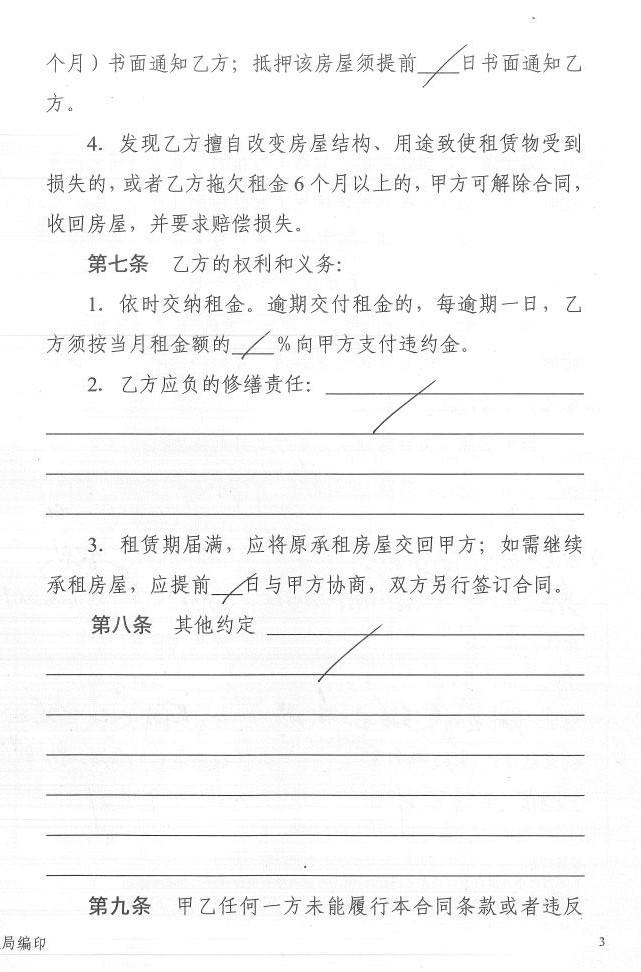 个月）书面通知乙方；抵押该房屋须提前 / 日书面通知乙
方。
4. 发现乙方擅自改变房屋结构、用途致使租赁物受到
损失的，或者乙方拖欠租金6个月以上的，甲方可解除合同，
收回房屋，并要求赔偿损失。
第七条 乙方的权利和义务：
1. 依时交纳租金。逾期交付租金的，每逾期一日，乙
方须按当月租金额的 / %向甲方支付违约金。
2. 乙方应负的修缮责任： /
3. 租赁期届满，应将原承租房屋交回甲方；如需继续
承租房屋，应提前 / 日与甲方协商，双方另行签订合同。
第八条 其他约定 /
第九条 甲乙任何一方未能履行本合同条款或者违反
局编印 3